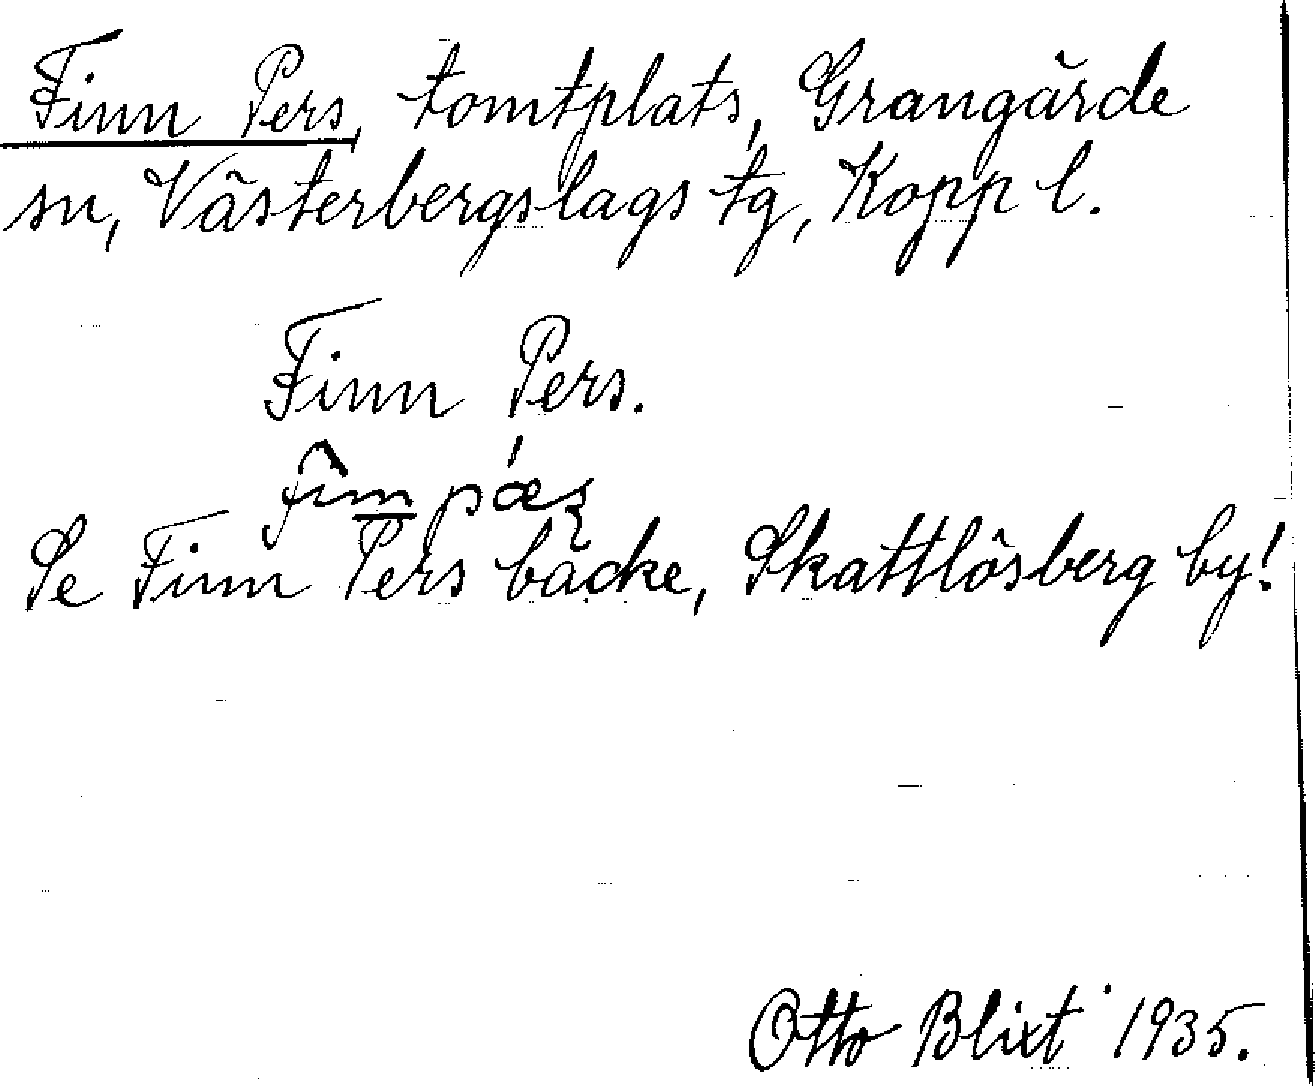 Finn Pers, tomtplats, Grangärde
sn, Västerbergslags tg, Kopp l.
Finn Pers.
Se Finn Pers backe, Skattlösberg by!
Otto Blixt 1935.